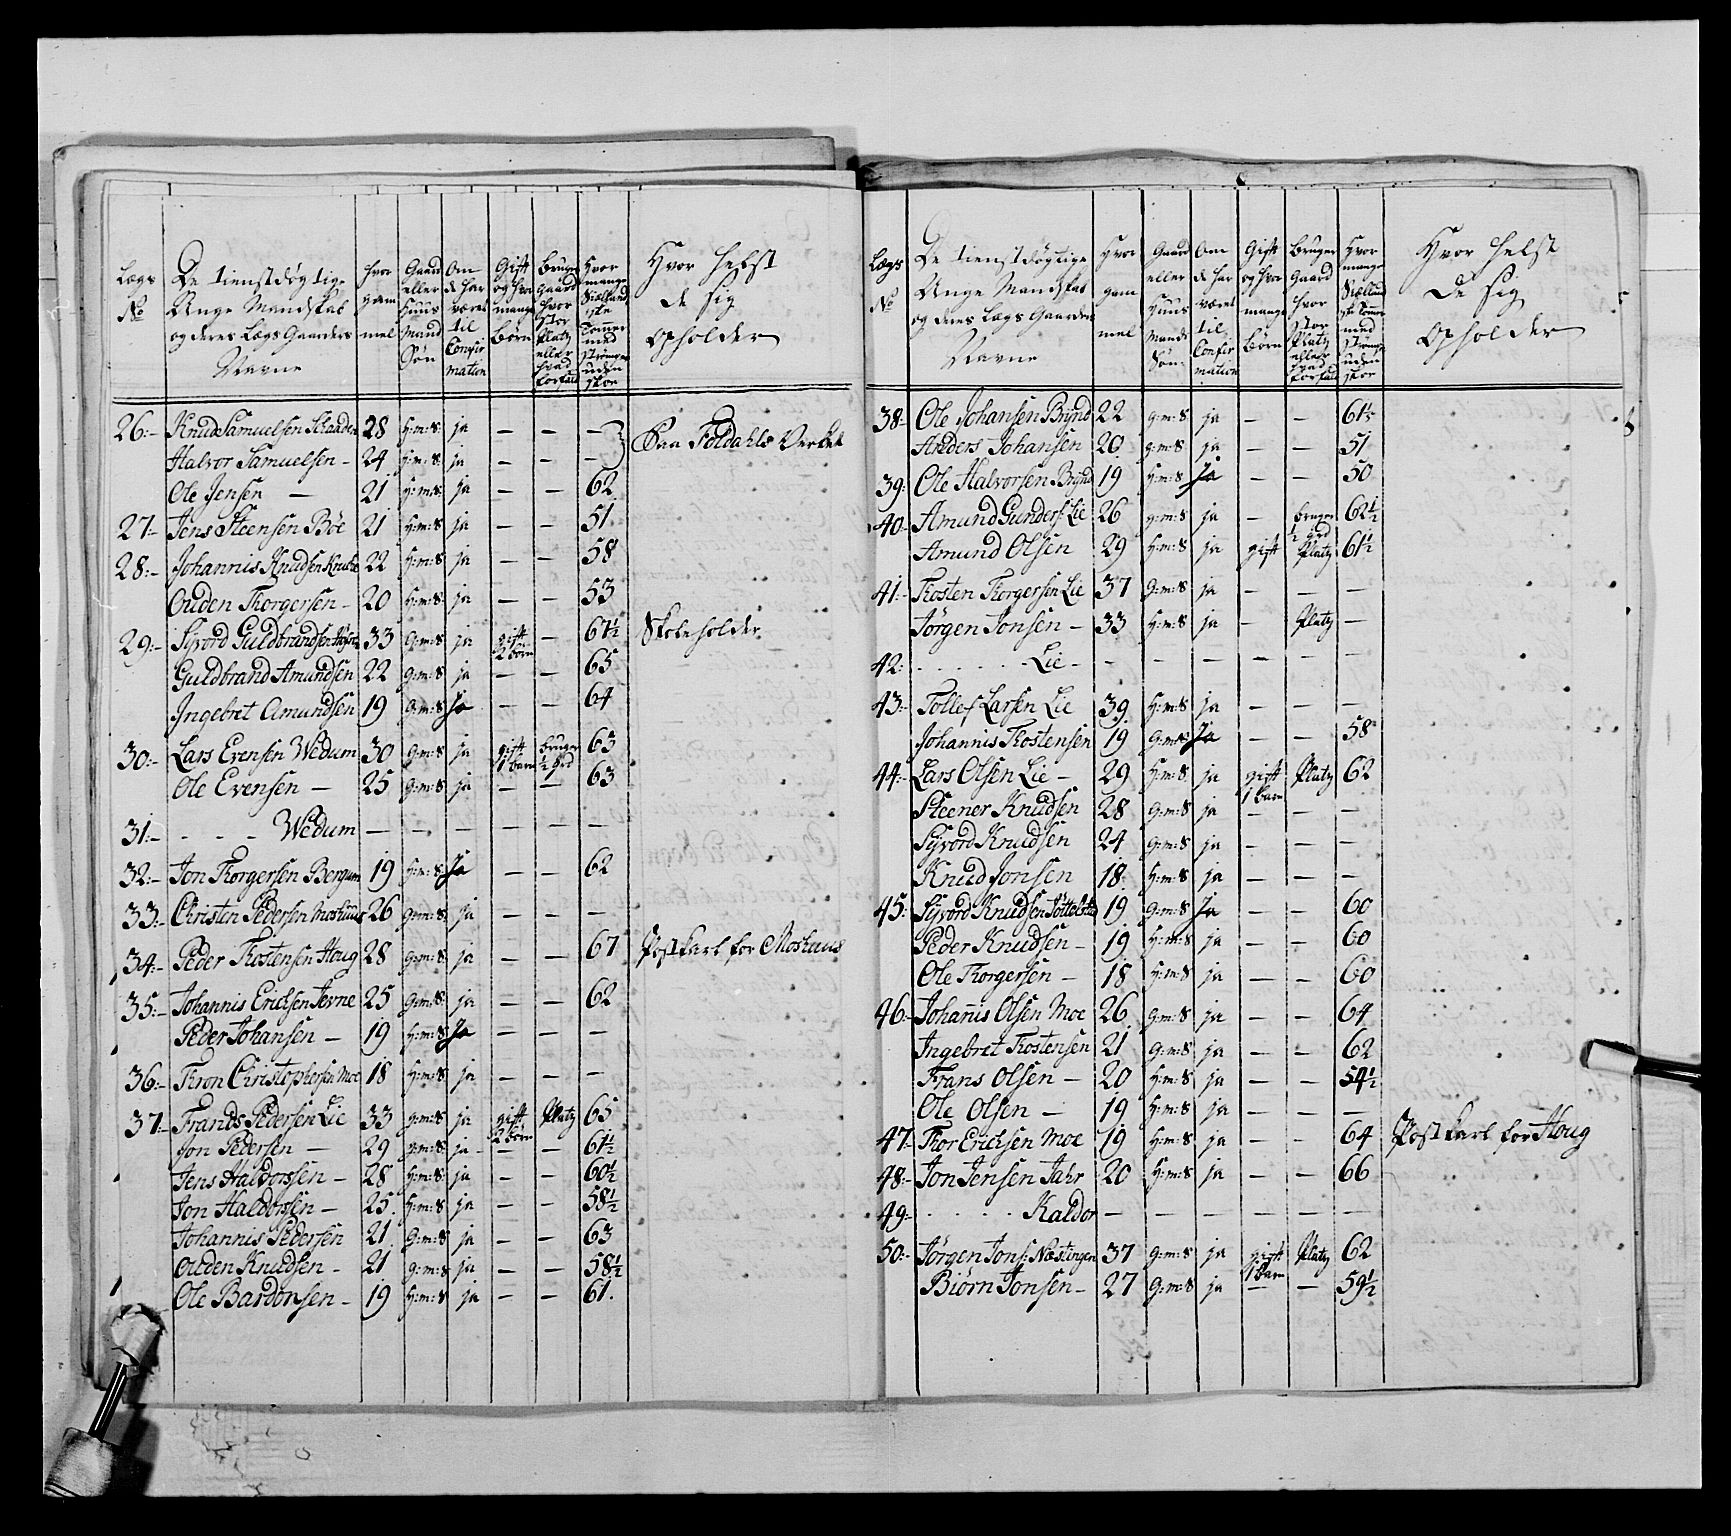 Lægs
No
De tienstdøgtige
Unge Mandskab
og deres Lægs Gaarders
Navne
Hvor
gam
mel
Gaard
eller
Huus
Mand
Søn
Om
de har
været
til
Confir
mation
Gift
og hvor
mange
Børn
Bruger
Gaard
hvor
stor
Platz
eller
hvad
Hvor
mange
Siælland
ske
Tomer
med
strømper
uden
skoe
Hvor helst
de sig
opholder
26:- Knud Samuelsen Skaaden 28 H:m:s ja - - -
Paa Foldahls Verket
Halvor Samuelsen - 24 H:m:s ja - - -
Ole Jensen - 21 H:m:s ja - - 62
27:- Jens Steensen Böe 21 H:m:s ja - - 51
28:- Johannis Knudsen 22 H:m:s ja - - 58
Ouden Thorgersen - 20 H:m:s ja - - 53
29:- Sÿvord Guldbrandsen 33 G:m:s ja gift 2 börn - 67½ Skoleholder
Guldbrand Amundsen 22 G:m:s ja - - 65
Ingebret Amundsen 19 G:m:s Ja - - 64
30:- Lars Evensen Wedum 30 G:m:s ja gift 1 barn bruger ½ grd 63
Ole Evensen - 25 G:m:s ja - - 63
31:- - - - Wedum - - - - - -
32:- Jon Thorgersen Bergum 19 H:m:s Ja - - 62
33:- Christen Pedersen Moshuus 26 G:m:s ja - - -
34:- Peder Thostensen Houg 28 G:m:s ja - - 67 Postkarl for Moshuus
35:- Johannis Erichsen Jevne 25 G:m:s ja - - 62
Peder Johansen - 19 H:m:s Ja - - -
36:- Thron Christophersen Moe 18 H:m:s ja - - -
37:- Frands Pedersen Lie 33 g:m:s ja gift 2 börn Platz 65
Jon Pedersen - 29 g:m:s ja - - 61½
Jens Haldorssen - 28 H:m:s ja - - 60½
Jon Haldorssen - 25 H:m:s ja - - 58½
Johannis Pedersen 21 G:m:s ja - - 63
Ouden Knudsen - 21 g:m:s ja - - 58½
Ole Bardonsen - 19 H:m:s ja - - 61.
Lægs
No
De tienstdøgtige
Unge Mandskab
og deres Lægs Gaarders
Navne
Hvor
gam
mel
Gaard
eller
Huus
Mands
Søn
Om
de har
været
til
Confir
mation
Gift
og hvor
mange
Børn
Bruger
Gaard
hvor
stor
Platz
eller
hvad
Hvor
mange
Siælland
ske Tomer
med
strømper
uden
skoe
Hvor helst
De sig
opholder
38:- Ole Johansen Brÿnd 22 g:m:s ja - - 61½
Anders Johansen 20 g:m:s ja - - 51
39: Ole Halvorsen Brÿnd 19 H:m:s Ja - - 50
40:- Amund Gunders: Lie 26 g:m:s ja - bruger ½ grd 62½
Amund Olsen 29 H:m:s ja gift Platz 61½
41:- Thosten Thorgersen Lie 37 G:m:s ja - - -
Jörgen Jonsen - 33 H:m:s ja - Platz -
42: - - - Lie - - - - - - -
43:- Tollef Larsen Lie 39 H:m:s ja - - -
Johannis Thostensen 19 G:m:s Ja - - 58
44:- Lars Olsen Lie - 29 H:m:s ja gift 1 barn Platz 62
Steener Knudsen 28 g:m:s ja - - -
Sÿvord Knudsen 24 g:m:s ja - - -
Knud Jonsen 18 H:m:s ja - - -
45: Sÿvord Knudsen Töftelsta 19 G:m:s Ja - - 60
Peder Knudsen - 19 H:m:s ja - - 60
Ole Thorgersen - 18 H:m:s ja - - 60
46:- Johannis Olsen Moe 26 g:m:s ja - - 64
Ingebret Thostensen 21 G:m:s ja - - 62
Frans Olsen - 20 H:m:s ja - - 54½
Ole Olsen - 19 H:m:s ja - - -
47:- Thor Erichsen Moe 19 H:m:s ja - - 64 Postkarl for Houg
48:- Jon Jensen Jahr 20 H:m:s ja - - 66
49:- - - - Kaldor - - - - - -
50:- Jörgen Jons: Næstingen 37 g:m:s ja gift 1 barn Platz 62
Biörn Jonsen - 27 G:m:s ja - - 59½